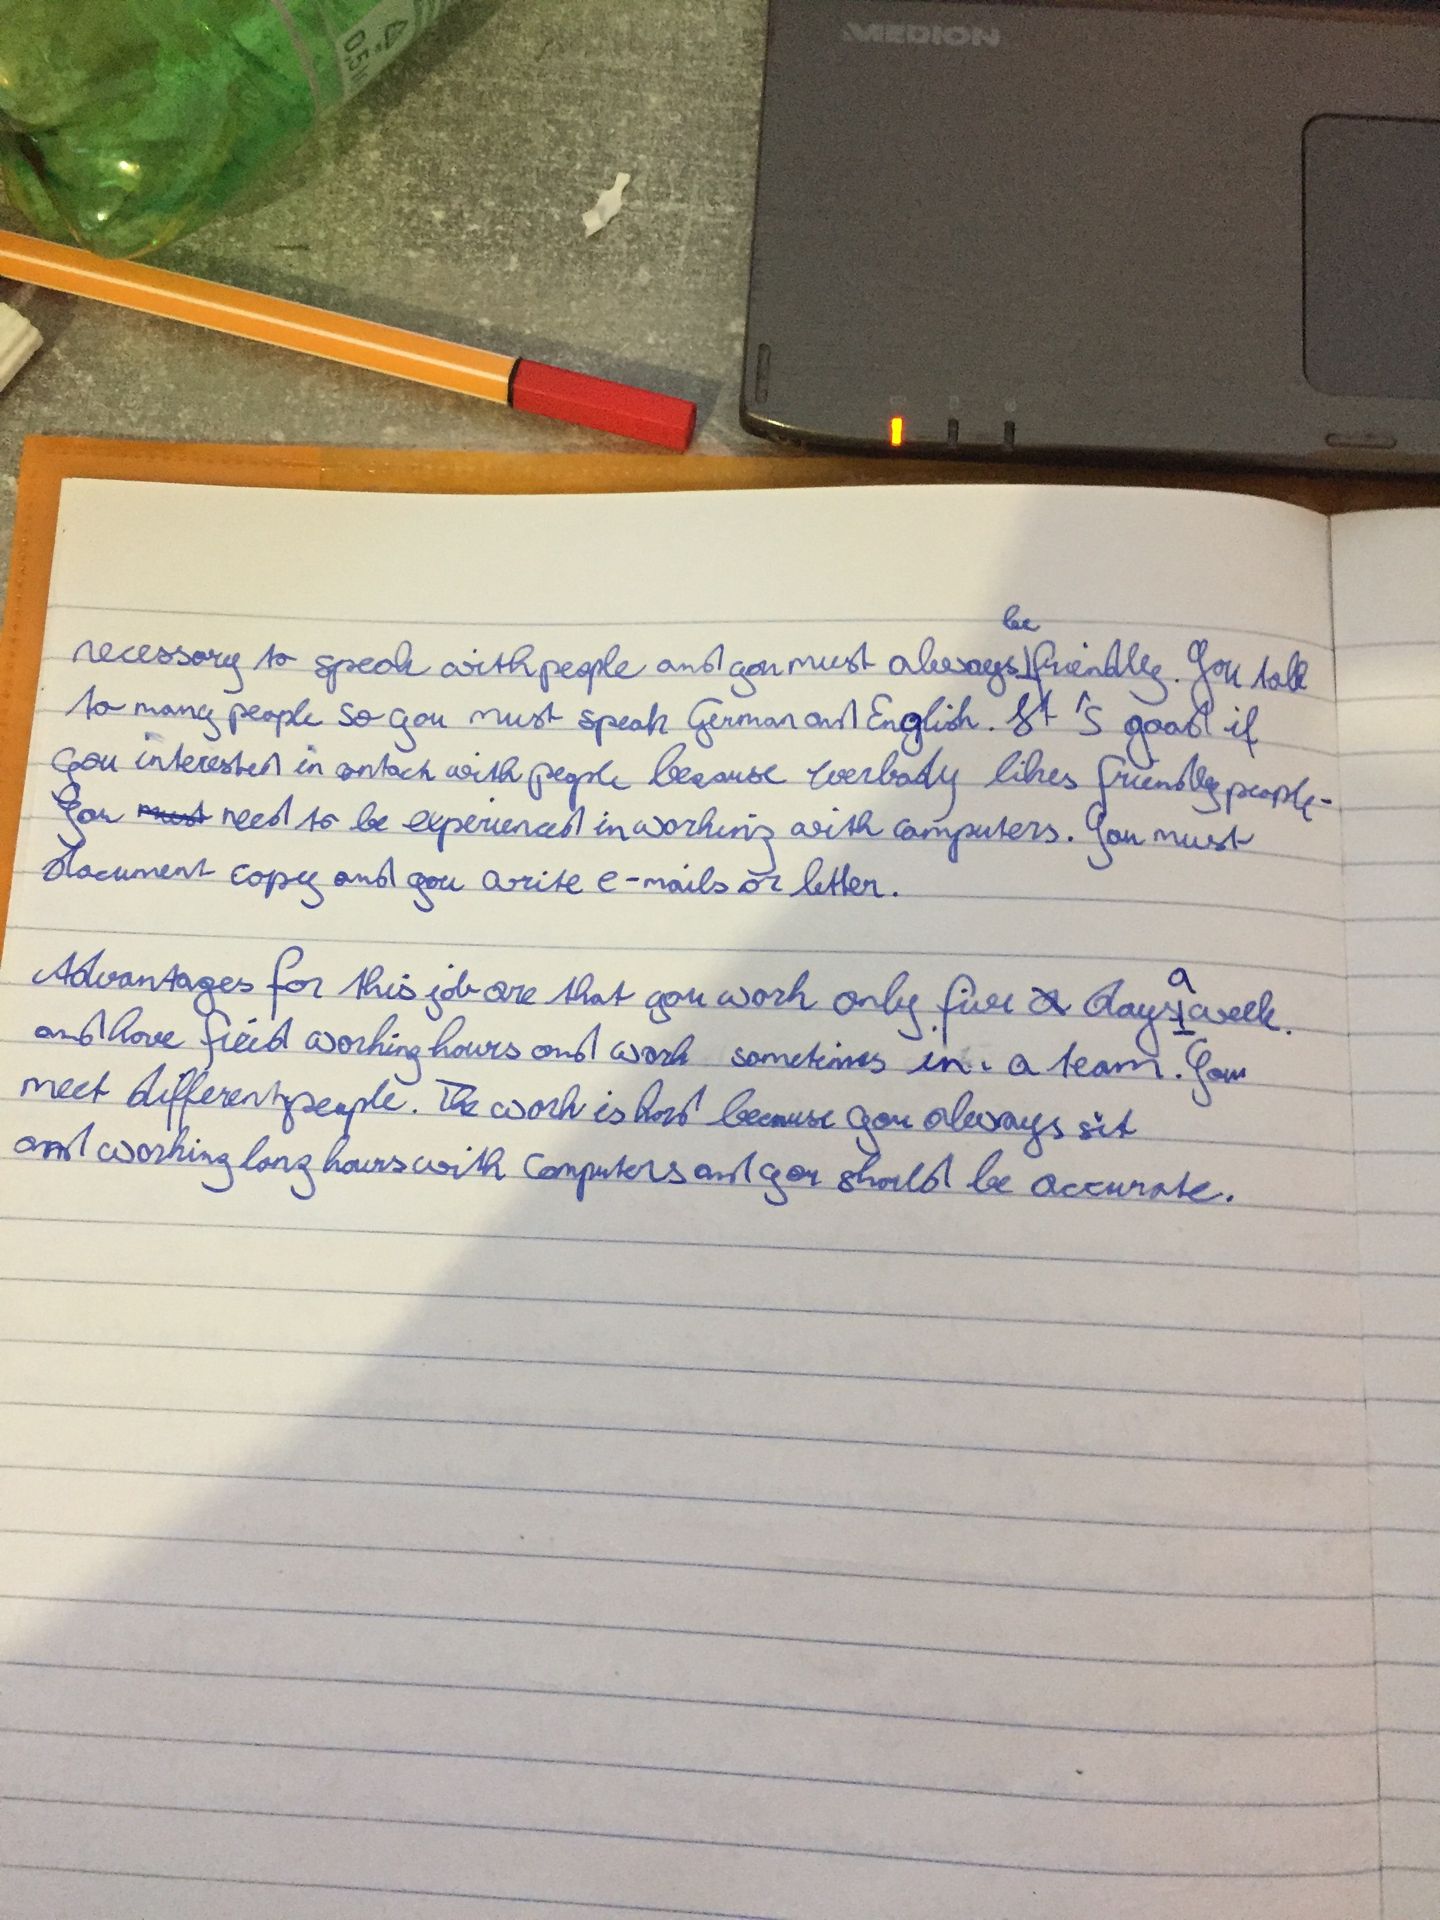 MEDION
0,5
necessary to speak with people and you must always be friendly. You talk
to many people so you must speak German and English. It's good if
you interested in contack with people because everbody likes friendly people.
You must need to be experienced in working with computers. You must
document copy and you write e-mails or letter.
Advantages for this job are that you work only five days a week.
and have fixed working hours and work sometimes in a team. You
meet different people. The work is hard because you always sit
and working long hours with computers and you should be accurate.